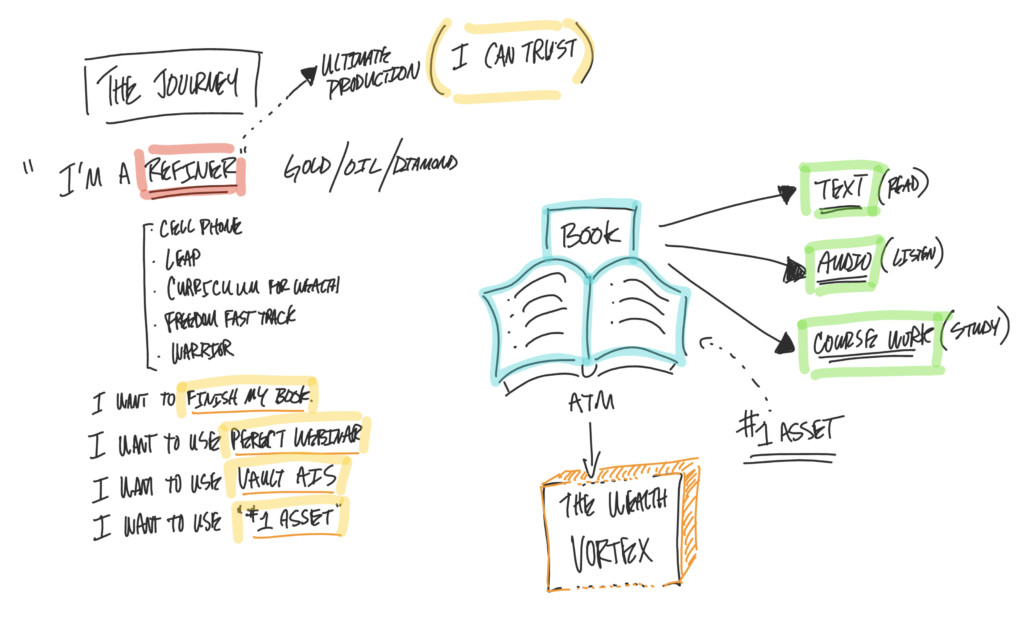 THE JOURNEY
ULTIMATE
PRODUCTION
(I CAN TRUST)
" I'M A REFINER"
GOLD/OIL/DIAMOND
· CELL PHONE
· LEAP
· CURRICULUM FOR WEALTH
· FREEDOM FAST TRACK
· WARRIOR
I WANT TO FINISH MY BOOK.
I WANT TO USE PERFECT WEBINAR
I WANT TO USE VAULT AIS
I WANT TO USE "#1 ASSET"
BOOK
ATM
THE WEALTH
VORTEX
TEXT (READ)
AUDIO (LISTEN)
COURSE WORK (STUDY)
#1 ASSET